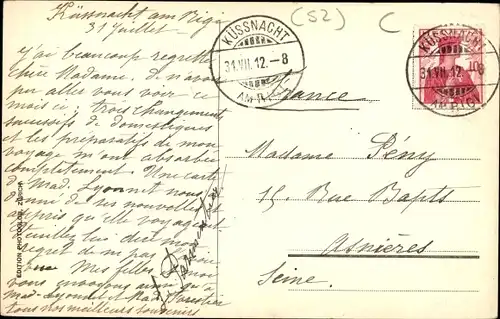 Küssnacht am Rigi
31 Juillet
J'ai beaucoup regretté
chère Madame, de n'avoir
pas aller vous voir ce
mois ci; trois changements
successifs de domestiques
et les préparatifs de mon
voyage m'ont absorbée
complètement. Une carte
de Mad. Lyonnet nous
donne de ses nouvelles et
appris qu'elle voyageait
Veuillez lui dire mon
regret de n'pas
Mes filles, moi
vous envoyons ainsi qu'à
Mad. Lyonnet et Mad.
tous nos meilleurs souvenirs
EDITION PHOTOGLOB, ZÜRICH
KÜSSNACHT
31.VII.12.-8
AM RIGI
(52)
C
KÜSSNACHT
31.VII.12.
10
AM RIGI
France
Madame Pény
15, Rue Bapts
Asnières
Seine.